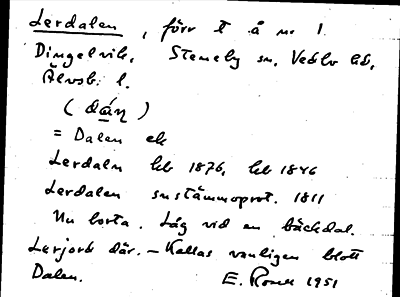 Lerdalen, förr t å nr 1
Dingelvik, Steneby sn, Vedbo hd,
Älvsb. l.
(dán)
= Dalen ek
Lerdaln hb 1876, hb 1846
Lerdalen sn stämmoprot. 1811
Nu borta. Låg vid en bäckdal.
Lerjord där. – Kallas vanligen blott
Dalen. E. 1951